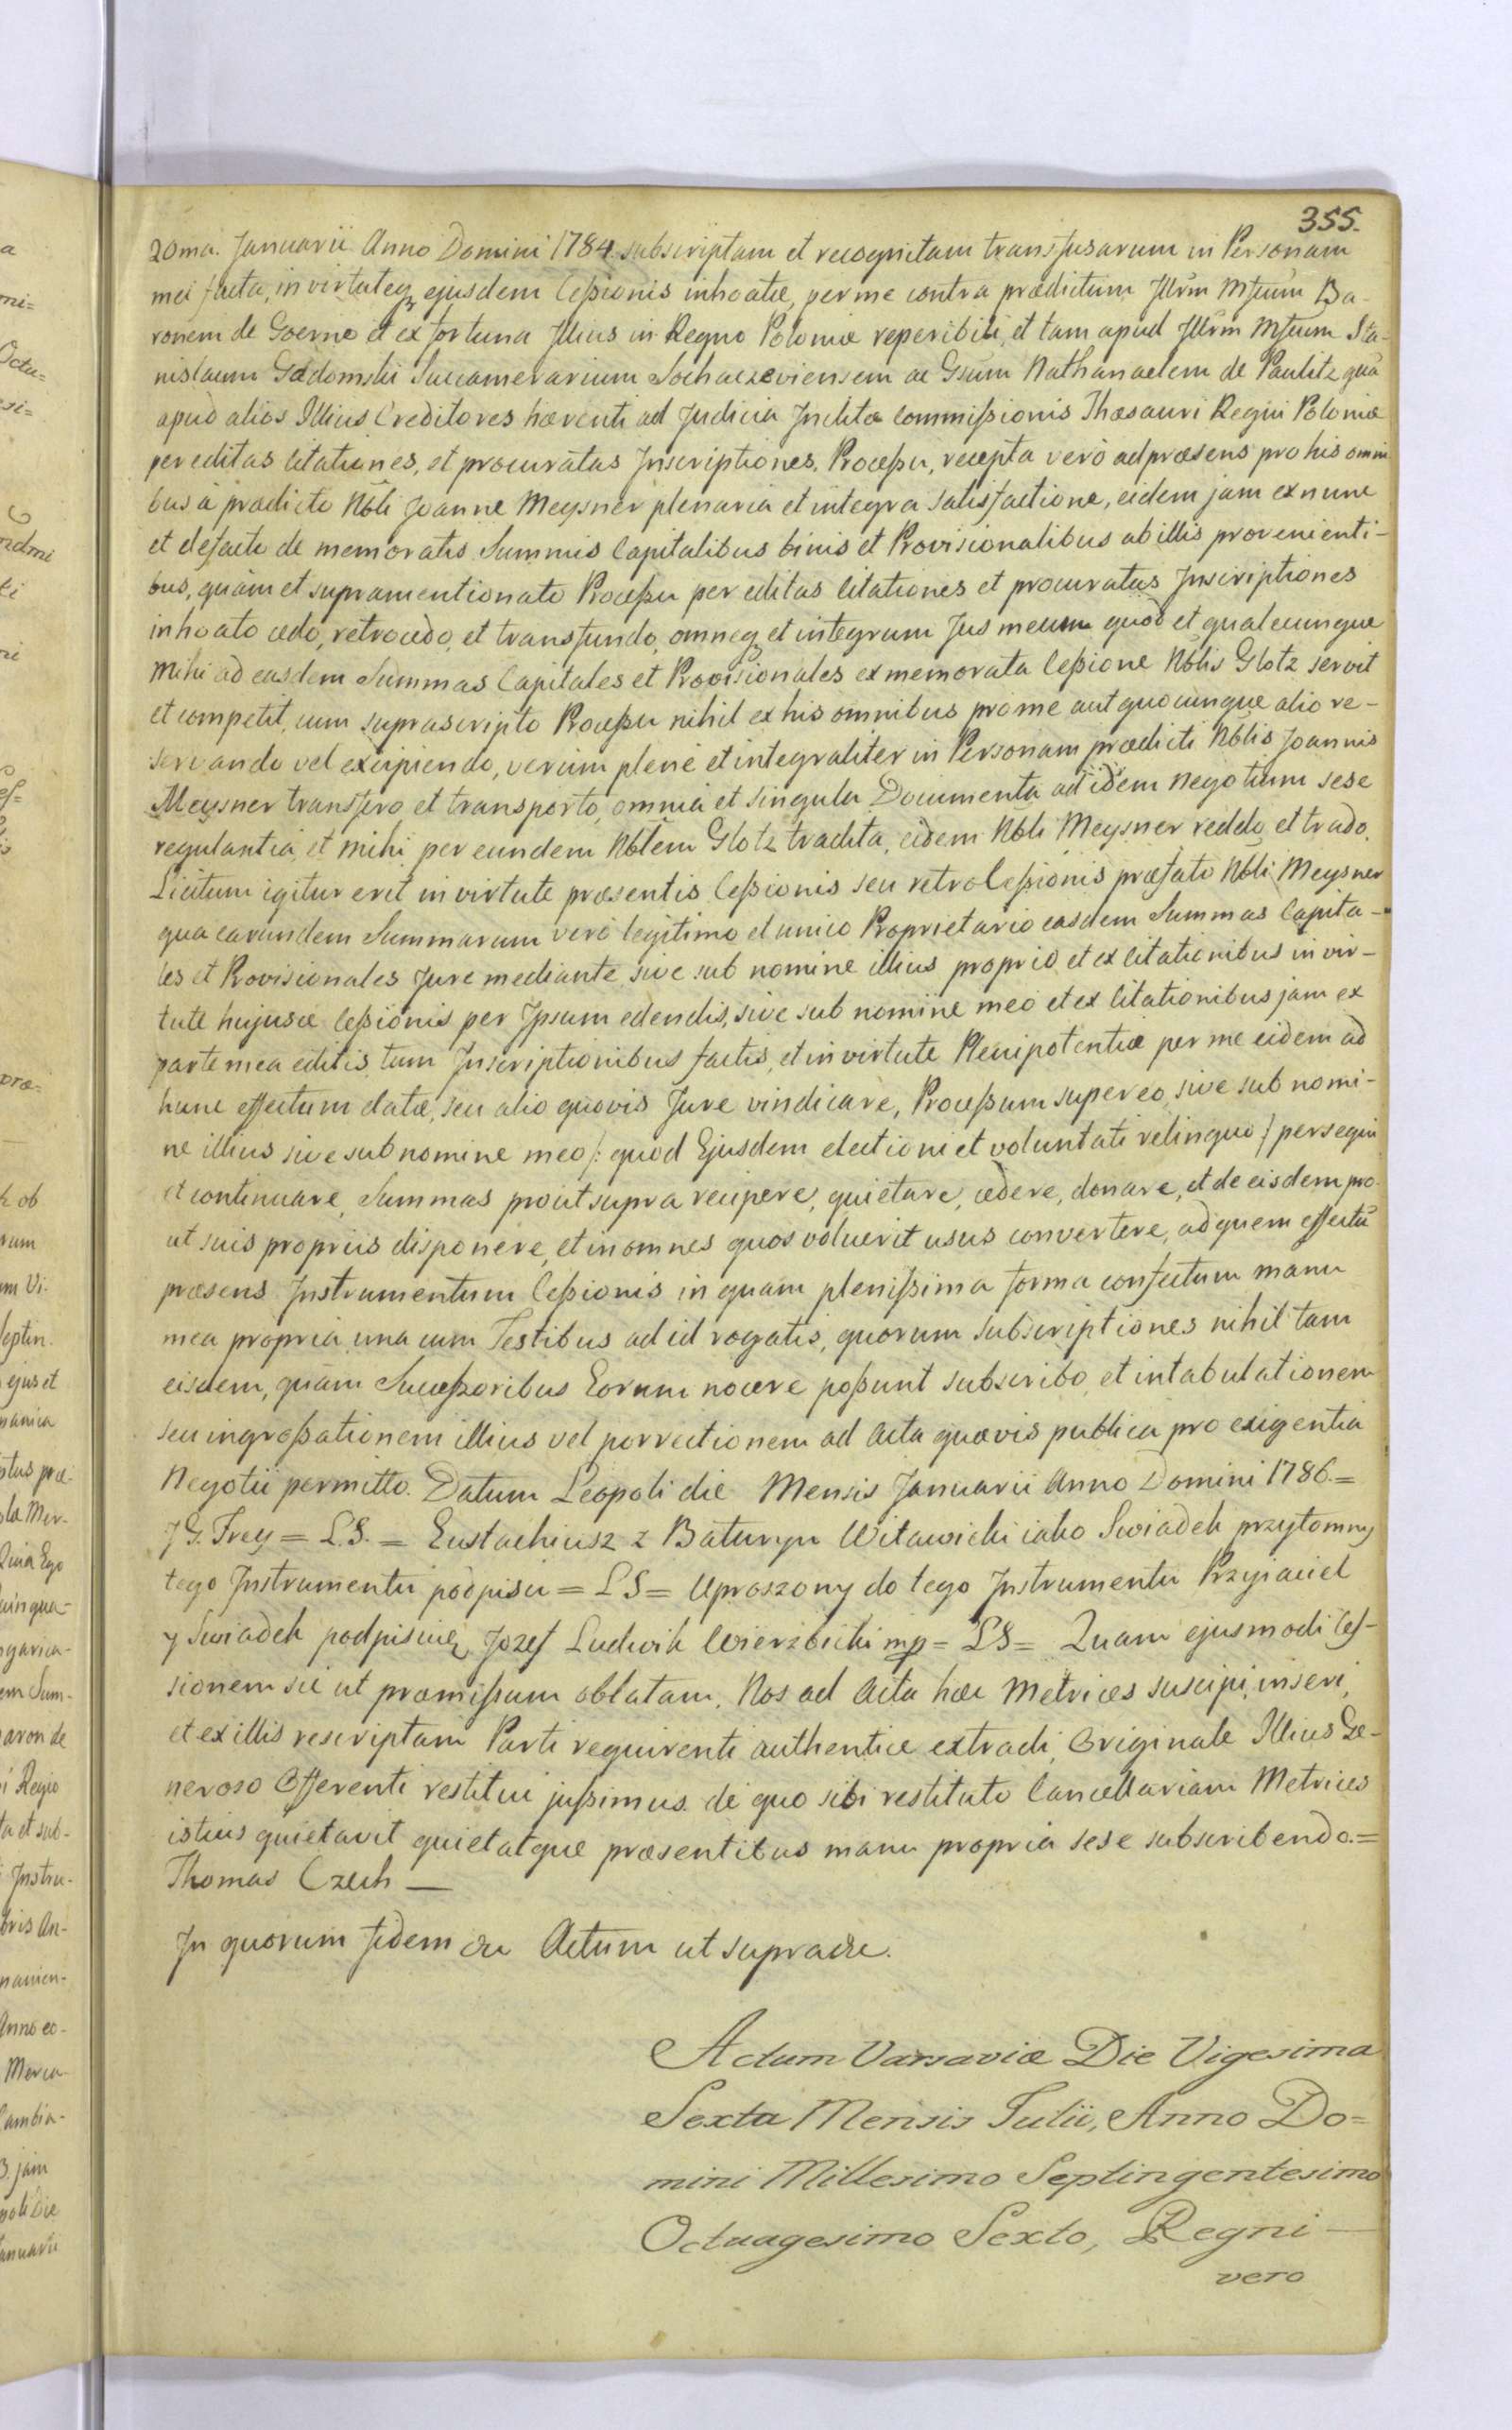 355.
20ma. Januarii Anno Domini 1784 subscriptam et recognitam transfusarum in Personam
mei facta, in virtuteq, ejusdem Ceßionis inhoatæ, per me contra prædictum Jllrm Mfcum Ba-
ronem de Goerne et ex fortuna Jllius in Regno Poloniæ reperibili, et tam apud Jllrm Mfcum Sta-
nislaum Gadomski Succamerarium Sochaczeviensem ac Gsum Nathanaelem de Paulitz quà
apud alios Illius Creditores hærenti ad Judicia Jnclitæ Commißionis Thæsauri Regni Poloniæ
per editas Citationes, et procuratas Jnscriptiones. Proceßu, recepta verò ad præsens pro his omni
bus à prædicto Nbli Joanne Meysner plenaria et integra satisfactione, eidem jam ex nunc
et defacto de memoratis Summis Capitalibus binis et Provisionalibus ab illis provenienti-
bus, quàm et supramentionato Proceßu per editas Citationes et procuratas Jnscriptiones
inhoato cedo, retrocedo, et transfundo, omneq et integrum Jus meum quod et qualecunque
Mihi ad easdem Summas Capitales et Provisionales ex memorata Ceßione Nblis Glotz servit
et competit, cum suprascripto Proceßu nihil ex his omnibus pro me aut quocunque alio re-
servando vel excipiendo, verùm plenè et integraliter in Personam prædicti Nblis Joannis
Meysner transfero et transporto, omnia et singula Documenta ad idem Negotium sese
regulantia, et mihi per eundem Nblem Glotz tradita, eidem Nbli Meysner reddo et trado.
Licitum igitur erit in virtute præsentis Ceßionis seu retroCeßionis præfato Nbli Meysner
qua earundem Summarum verò legitimo et unico Proprietario easdem Summas Capita-
les et Provisionales Jure mediante, sive sub nomine illius proprio et ex Citationibus in vir-
tute hujusce Ceßionis per Jpsum edendis, sive sub nomine meo et ex Citationibus jam ex
parte mea editis, tum Jnscriptionibus factis, et in virtute Plenipotentiæ per me eidem ad
hunc effectum datæ, seu alio quovis Jure vindicare, Proceßum super eo, sive sub nomi-
ne illius sive sub nomine meo /: quod Ejusdem electioni et voluntati relinquo :/ persequi
et continuare, Summas prout supra recipere, quietare, cedere, donare, et de eisdem pro-
ut suis propriis disponere, et in omnes quos voluerit usus convertere, ad quem effectũ
præsens Jnstrumentum Ceßionis in quàm plenißima forma confectum manu
mea propria una cum Testibus ad id rogatis, quorum subscriptiones nihil tam
eisdem, quàm Succeßoribus Eorum nocere poßunt subscribo, et intabulationem
seu ingroßationem illius vel porrectionem ad Acta quævis publica pro exigentia
Negotii permitto. Datum Leopoli die Mensis Januarii Anno Domini 1786.=
J G. Frey = L.S. = Eustachiusz z Baturyn Witawicki iako Swiadek przytomny
tego Jnstrumentu podpisu = LS = Uproszony do tego Jnstrumentu Przyiaciel
y Swiadek podpisuię Jozef Ludwik Wierzbicki mp = LS = Quam ejusmodi Ces-
sionem sic ut præmißum oblatam, Nos ad Acta hæc Metrices suscipi, inseri,
et ex illis rescriptam Parti requirenti authenticè extradi, Originale Illius Ge-
neroso Offerenti restitui jußimus. de quo sibi restituto Cancellariam Metrices
istius quietavit quietatque præsentibus manu propria sese subscribendo.=
Thomas Czech —
Jn quorum fidem &c Actum ut supra &c.
Actum Varsaviæ Die Vigesima
Sexta Mensis Julii, Anno Do=
mini Millesimo Septingentesimo
Octuagesimo Sexto, Regni —
vero